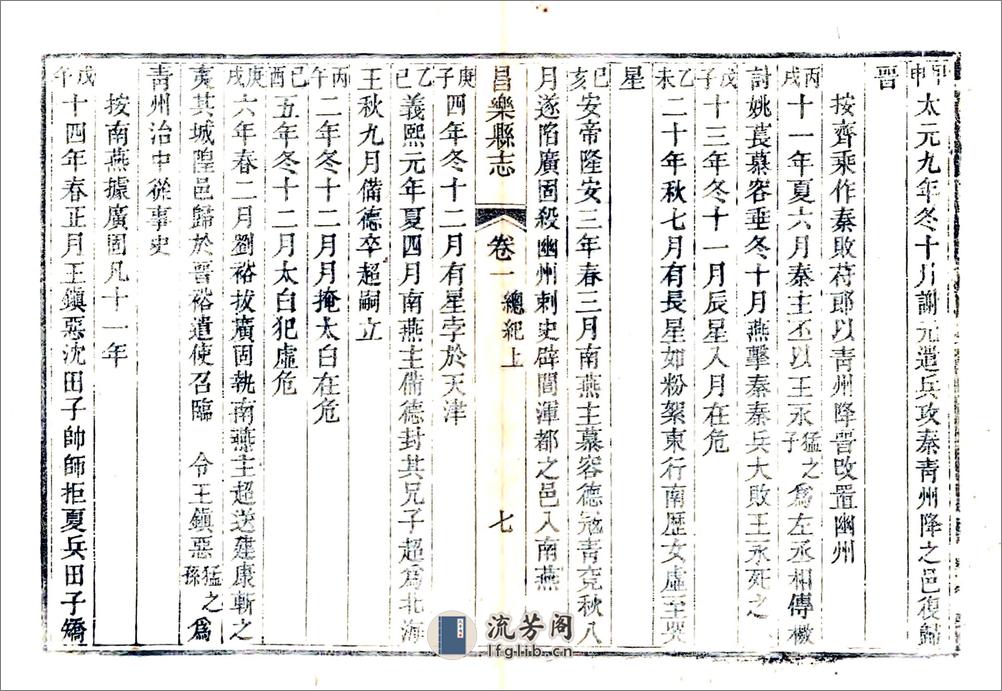 甲申太元九年冬十月謝元遣兵攻秦青州降之邑復歸
晉
按齊乘作秦敗苻郎以青州降晉改置幽州
丙戌十一年夏六月秦主丕以王永猛之子爲左丞相傳檄
討姚萇慕容垂冬十月燕擊秦秦兵大敗王永死之
戊子十三年冬十一月辰星入月在危
乙未二十年秋七月有長星如粉絮東行南歷女虛至哭
星
己亥安帝隆安三年春三月南燕主慕容德寇青兗秋八
月遂陷廣固殺幽州刺史辟閭渾都之邑入南燕
昌樂縣志 卷一 總紀上 七
庚子四年冬十二月有星孛於天津
乙巳義熙元年夏四月南燕主備德封其兄子超爲北海
王秋九月備德卒超嗣立
丙午二年冬十二月月掩太白在危
己酉五年冬十二月太白犯虛危
庚戌六年春二月劉裕拔廣固執南燕主超送建康斬之
夷其城隍邑歸於晉裕遣使召臨 令王鎮惡猛之孫爲
青州治中從事史
按南燕據廣固凡十一年
戊午十四年春正月王鎮惡沈田子帥師拒夏兵田子矯
流芳阁
lfglib.cn